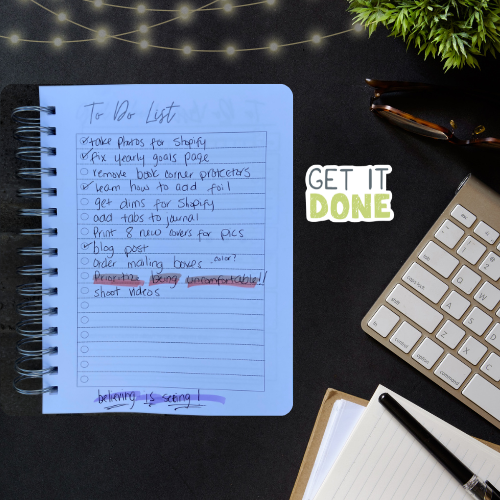 To Do List
take photos for Shopify
fix yearly goals page
remove book corner protectors
learn how to add foil
get dims for Shopify
add tabs to journal
Print 8 new covers for pics
blog post
order mailing boxes color?
Prioritize being uncomfortable!!
shoot videos
believing is seeing!
GET IT
DONE